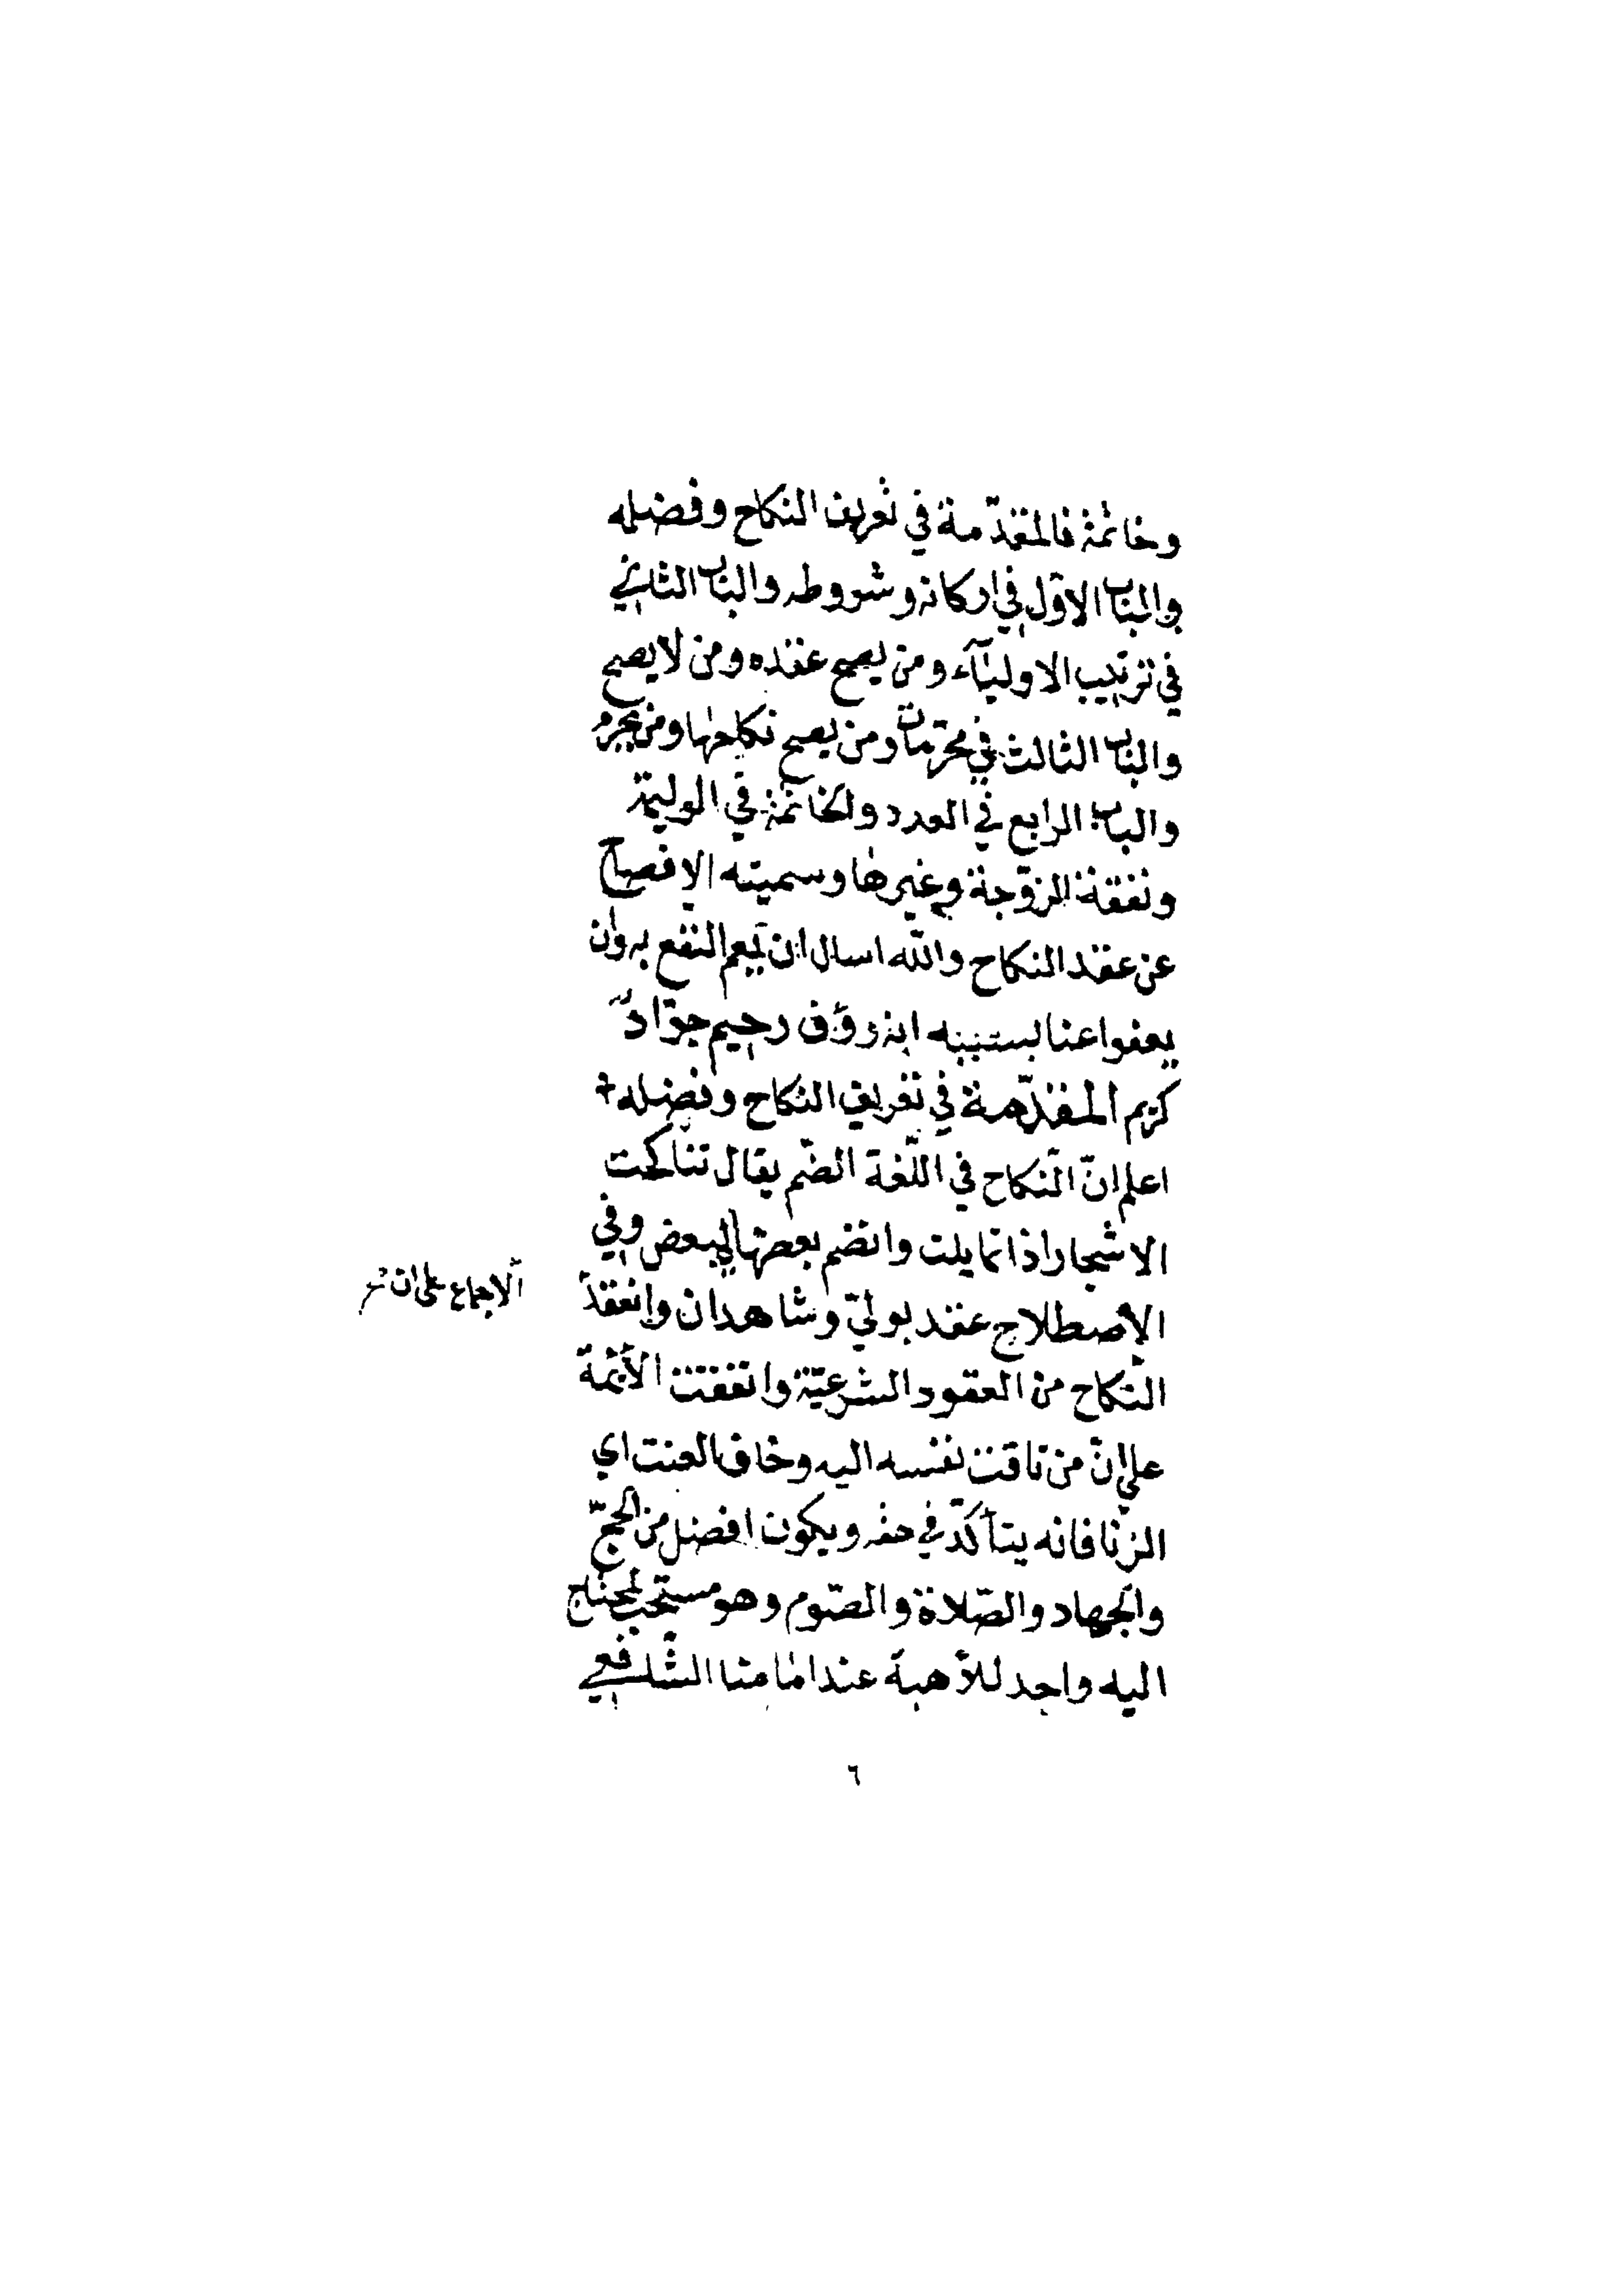 وخاتمة فالمقدّمة في تعريف النكاح وفضله
والباب الاوّل في اركانه وشروطه والباب الثاني
في ترتيب الاولياء ومن يصح عقده ومن لا يصح
والباب الثالث في محرّمات ومن يصح نكاحها ومن يحرم
والباب الرابع في العدد والخاتمة في الوليمة
ونفقة الزوجة وغيرها وسميته الافصاح
عن عقد النكاح والله اسال ان يعم النفع به وان
يعفوا عنا بسببه انه رؤف رحيم جوّادٌ
كريم المقدّمة في تعريف النكاح وفضله
اعلم انّ النّكاح في اللّغة الضّم يقال تناكحت
الاشجار اذا تمايلت وانضم بعضها لبعض وفي
الاصطلاح عقد بوليّ وشاهدان وانعقد
الاجماع على ان
النّكاح من العقود الشرعيّة واتفقت الأئمّة
على انّ من تاقت نفسه اليه وخاف العنت اي
الزنا فانه يتأكدّ في حقه ويكون افضل من الحجّ
والجهاد والصّلاة والصّوم وهو مستحب لمحتاج
اليه واجد للأهبة عند امامنا الشّافعي
٦